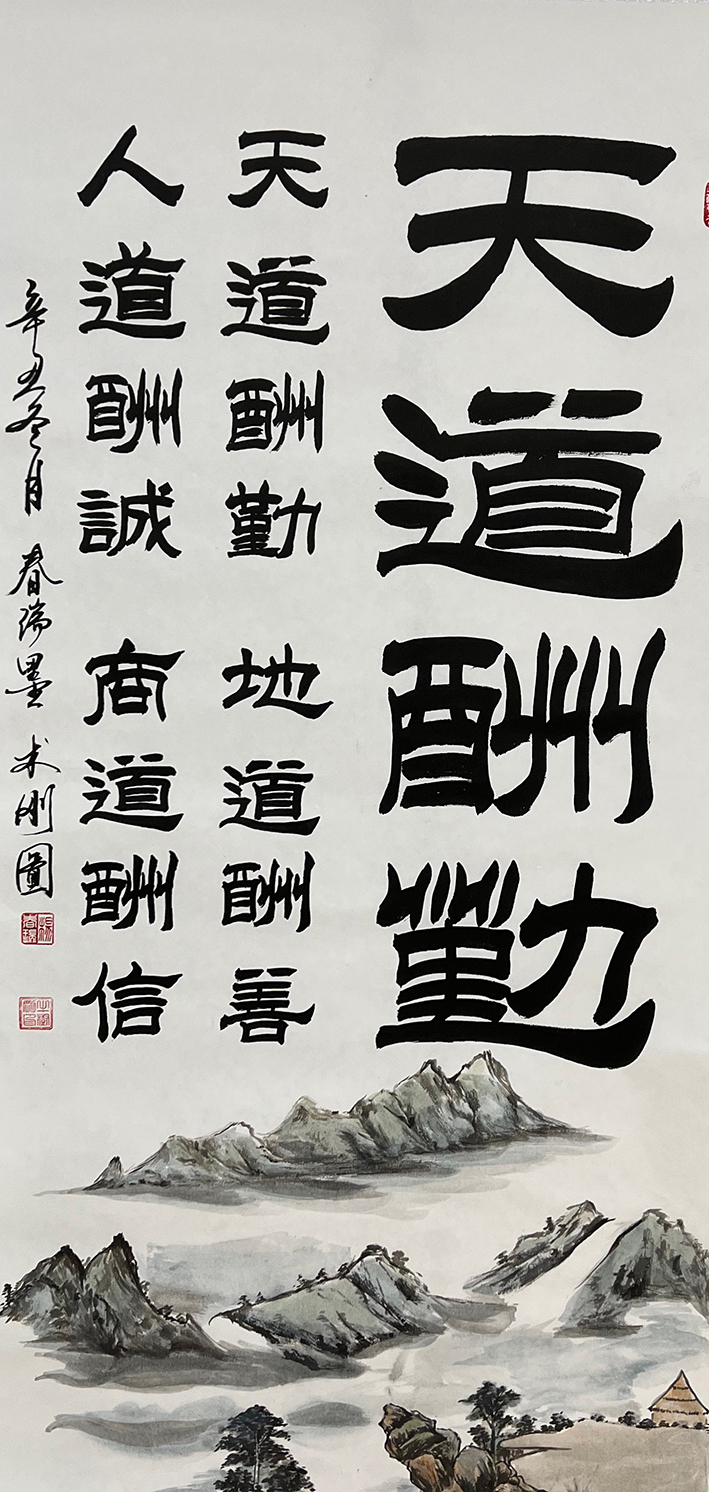 天道酬勤
天道酬勤 地道酬善
人道酬誠 商道酬信
辛丑冬月 春瑞墨 术刚圖